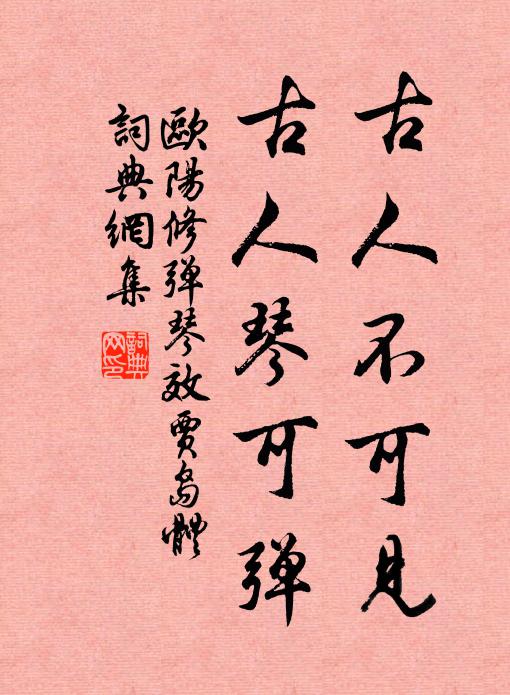 古人不可見
古人琴可弹
歐陽修弹琴效賈島體
詞典網集
詞典网印